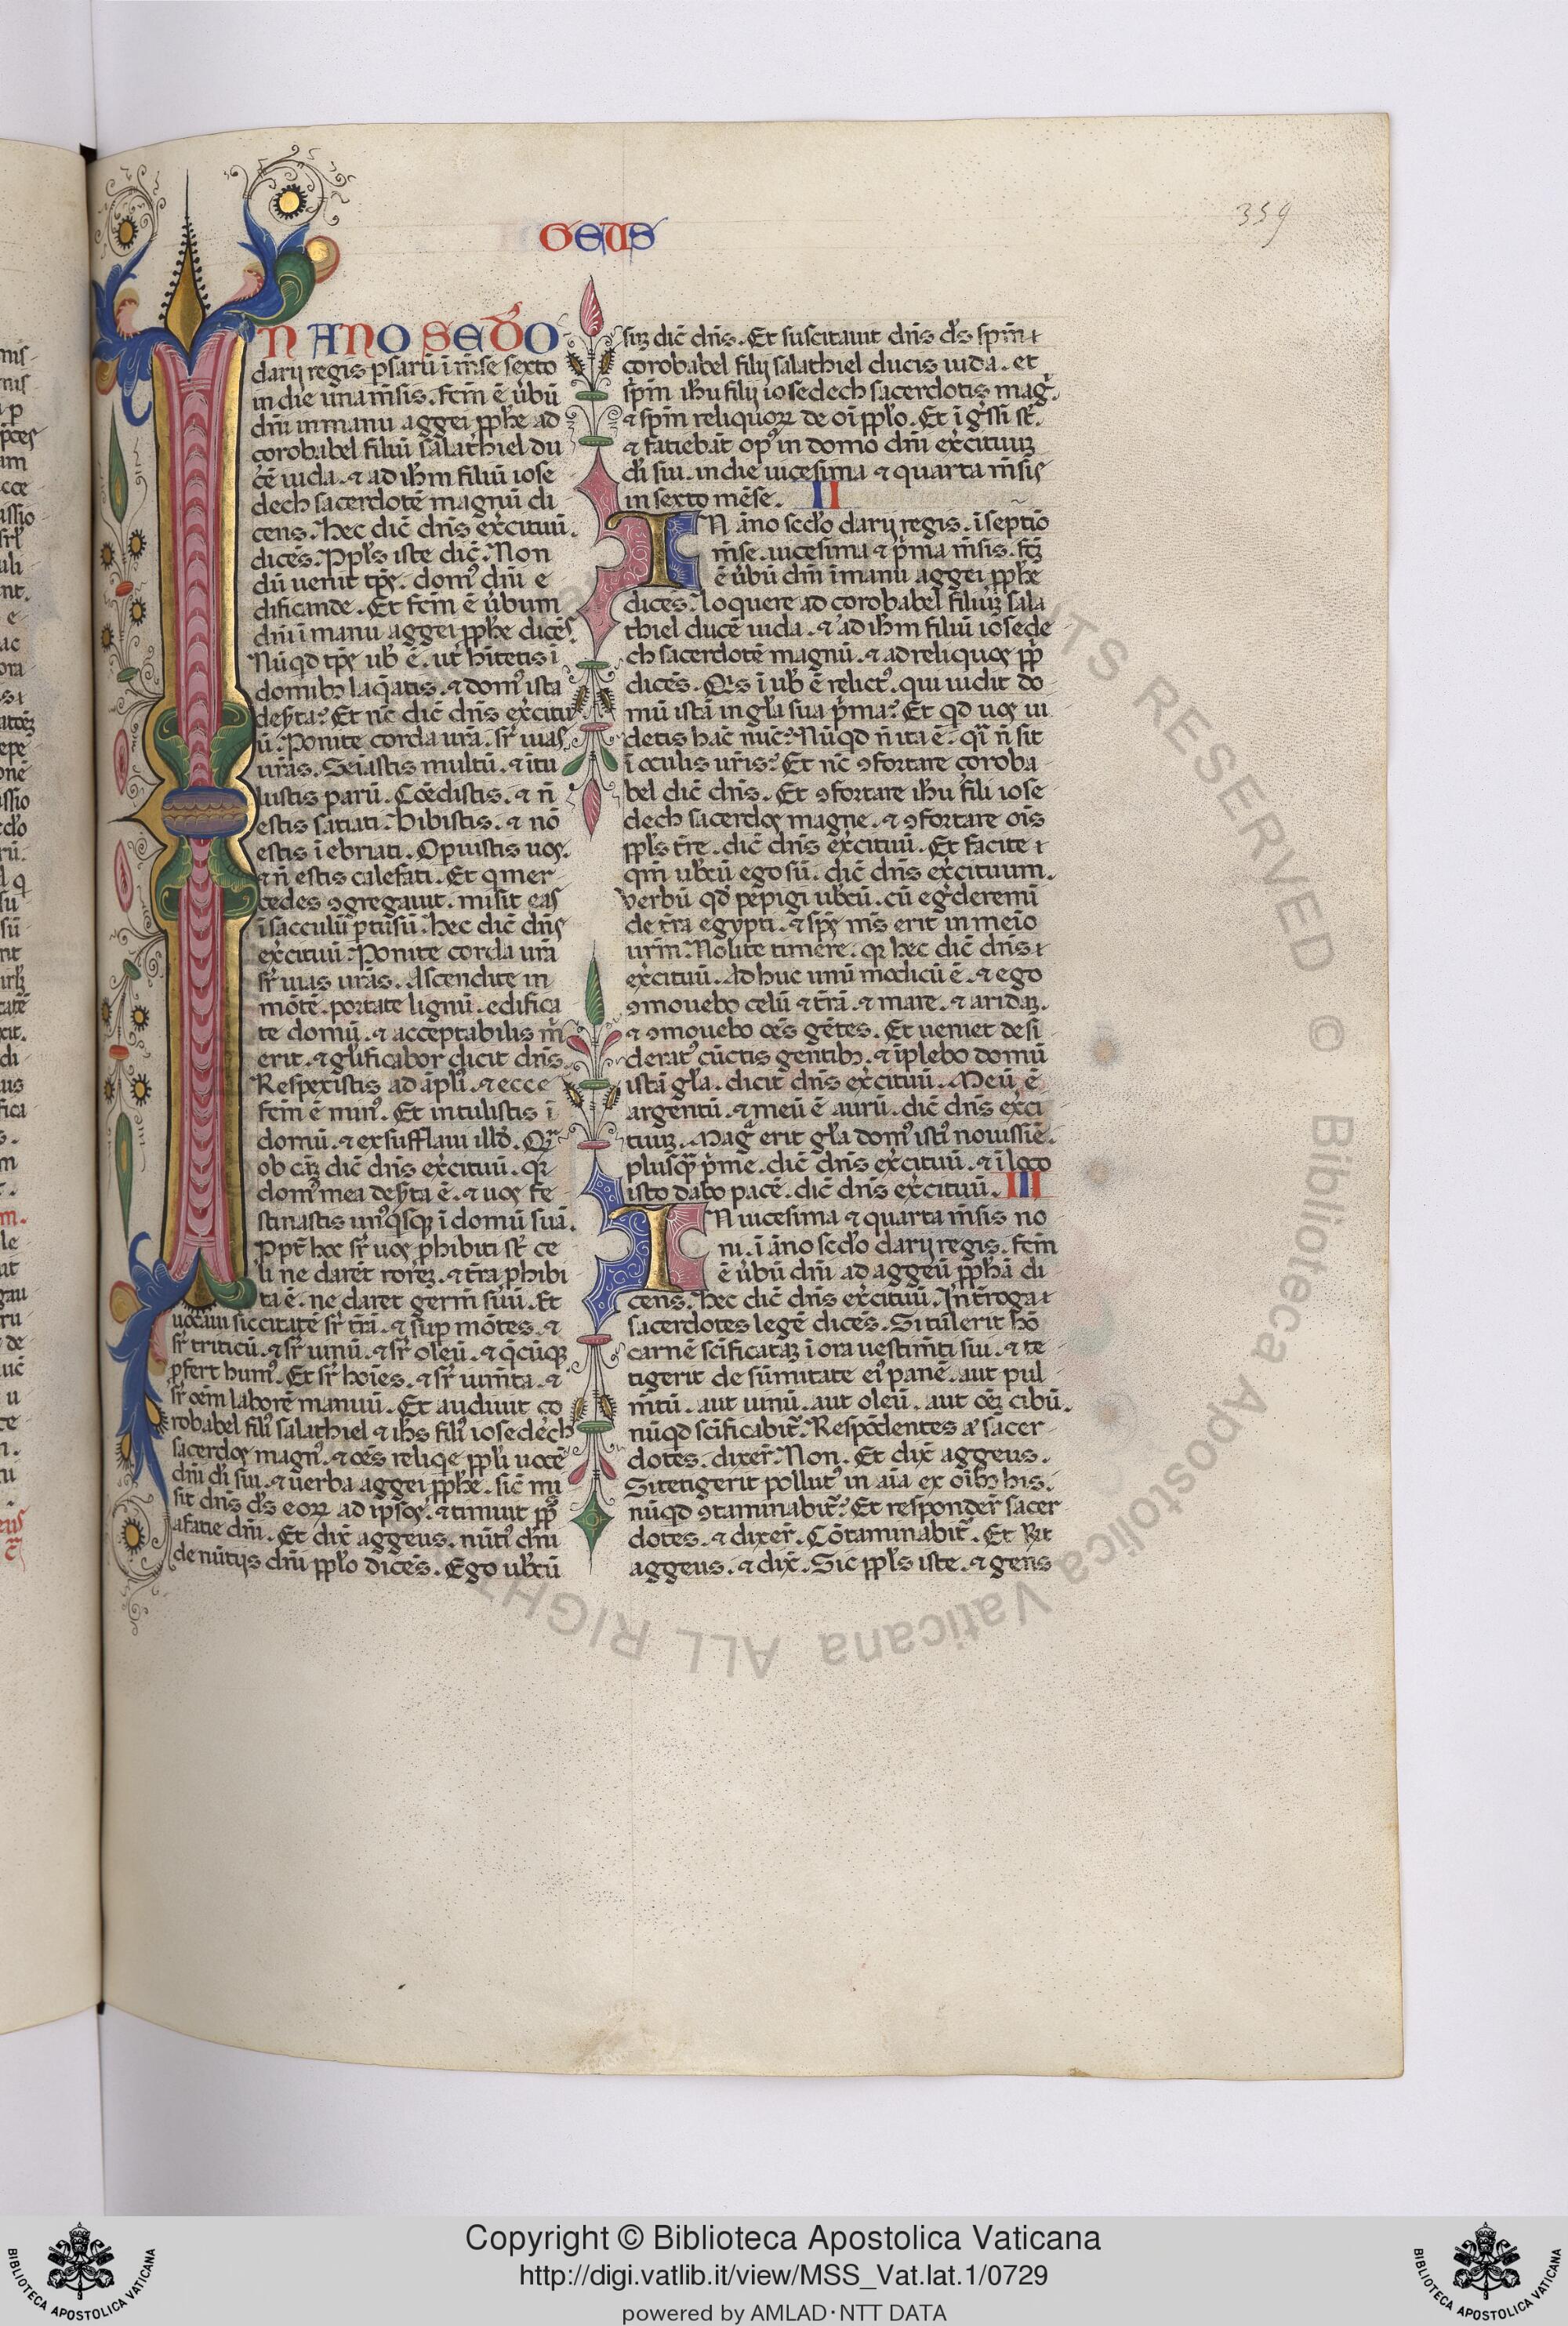 GEUS
359
IN ANO SEDO
darij regis psarū ī mēse sexto
in die una m̄sis. fcm̄ ē ūbū
dn̄i in manu aggei pphe ad
corobabel filiū salathiel du
cē iuda. ⁊ ad ihm filiū iose
dech sacerdotē magnū di
cens. hec dic̄ dn̄s exercituū.
dicēs. Ppl̄s iste dic̄. Non
dū uenit tp̄s. dom' dn̄i e
dificande. Et fcm̄ ē ūbum
dn̄i ī manu aggei pphe dicēs.
Nūqd tp̄s uob ē. ut hītetis ī
domib; laq̄atis. ⁊ dom' ista
dēs̄ta? Et nc̄ dic̄ dn̄s exercitu
ū. Ponite corda urā. sr̄ uias
urās. Seiastis multū. ⁊ ītu
lustis parū. Cōedistis. ⁊ n̄
estis satiati. bibistis. ⁊ nō
estis ī ebriati. Opuistis uos.
⁊ n̄ estis calefati. Et q mer
cedes ꝯgregauit. misit eas
ī sacculū ptusū. hec dic̄ dn̄s
exercituū. Ponite corda urā
sr̄ uias urās. Ascendite in
mōtē. portate lignū. edifica
te domū. ⁊ acceptabilis m̄
erit. ⁊ gl̄ificabor dicit dn̄s.
Respexistis ad āpl'. ⁊ ecce
fcm̄ ē min'. Et intulistis ī
domū. ⁊ exsufflaui illd. Qr̄
ob cāz dic̄ dn̄s exercituū. qr
dom' mea dēs̄ta ē. ⁊ uos fe
stinastis un'qsq; ī domū suā.
Ppt̄ hoc sr̄ uos phibiti st̄ ce
li ne darēt rorez. ⁊ tr̄a phibi
ta ē. ne daret germ̄ suū. Et
uocaui siccitatē sr̄ tr̄ā. ⁊ sup mōtes. ⁊
sr̄ triticū. ⁊ sr̄ uinū. ⁊ sr̄ oleū. ⁊ q̄cūq;
pfert hum'. Et sr̄ hoīes. ⁊ sr̄ iumn̄ta. ⁊
sr̄ oēm laborē manuū. Et audiuit co
robabel fili' salathiel ⁊ ih̄s fili' iosedech
sacerdos magn'. ⁊ oēs reliqe ppli uocē
dn̄i di sui. ⁊ uerba aggei pphe. sic̄ mi
sit dn̄s ds eorꝝ ad ipsos. ⁊ timuit ppl's
a fatie dn̄i. Et dix̄ aggeus. nūti' dn̄i
de nūtijs dn̄i pplo dicēs. Ego uobcū
suz dic̄ dn̄s. Et suscitauit dn̄s ds spm̄
corobabel filij salathiel ducis iuda. et
spm̄ ihu filij iosedech sacerdotis mag̅.
⁊ spm̄ reliquorꝝ de oī pplo. Et īgssi st̄.
⁊ fatiebāt op' in domo dn̄i exercituuz
di sui. in die uicesima ⁊ quarta m̄sis
in sexto mēse. II
IN āno scdo darij regis. ī septīo
m̄se. uicesima ⁊ pma m̄sis. fcz
ē ūbū dn̄i ī manu aggei pphe
dicēs. loquere ad corobabel filiuz sala
thiel ducē iuda. ⁊ ad ihm filiū iosede
ch sacerdotē magnū. ⁊ ad reliquos pp
dicēs. Qs ī uob ē relict'. qui uidit do
mū istā in gla sua pma? Et qd uos ui
detis hāc nūc? Nūqd n̄ ita ē. q̄i n̄ sit
ī oculis uris? Et nc̄ ꝯfortare coroba
bel dic̄ dn̄s. Et ꝯfortare ihu fili iose
dech sacerdos magne. ⁊ ꝯfortare oīs
ppls tr̄e. dic̄ dn̄s exercituū. Et facite
qm̄ uobcū ego sū. dic̄ dn̄s exercituum.
Verbū qd pepigi uobcū. cū egderemī
de tr̄a egypti. ⁊ sps m̄s erit in meīo
urm̄. Nolite timere. q; hec dic̄ dn̄s
exercituū. Ad huc unū modicū ē. ⁊ ego
ꝯmouebo celū ⁊ tr̄ā. ⁊ mare. ⁊ aridaz.
⁊ ꝯmouebo oēs gētes. Et ueniet desi
derat' cūctis gentib;. ⁊ īplebo domū
istā gla. dicit dn̄s exercituū. Meū ē
argentū. ⁊ meū ē aurū. dic̄ dn̄s exerci
tuuz. Mag̅ erit gla dom' isti' nouissīe.
plusq̄ pme. dic̄ dn̄s exercituū. ⁊ ī loco
isto dabo pacē. dic̄ dn̄s exercituū. III
IN uicesima ⁊ quarta m̄sis no
ni. ī āno scdo darij regis. fcm̄
ē ūbū dn̄i ad aggeū pphā di
cens. hec dic̄ dn̄s exercituū. Int̄roga
sacerdotes legē dicēs. Si tulerit hō
carnē scīficataz ī ora uestim̄ti sui. ⁊ te
tigerit de sūmitate ei' panē. aut pul
m̄tū. aut uinū. aut oleū. aut oēz cibū.
nūqd scīficabit̄. Respōdentes aū sacer
dotes. dixer̄. Non. Et dix̄ aggeus.
Si tetigerit pollut' in aīa ex oīb; his.
nūqd ꝯtaminabit̄? Et responder̄ sacer
dotes. ⁊ dixer̄. Cōtaminabit̄. Et Rit
aggeus. ⁊ dix̄. Sic ppls iste. ⁊ gens
© Biblioteca Apostolica Vaticana ALL RIGHTS RESERVED
Copyright © Biblioteca Apostolica Vaticana
http://digi.vatlib.it/view/MSS_Vat.lat.1/0729
powered by AMLAD·NTT DATA
BIBLIOTECA APOSTOLICA VATICANA
BIBLIOTECA APOSTOLICA VATICANA